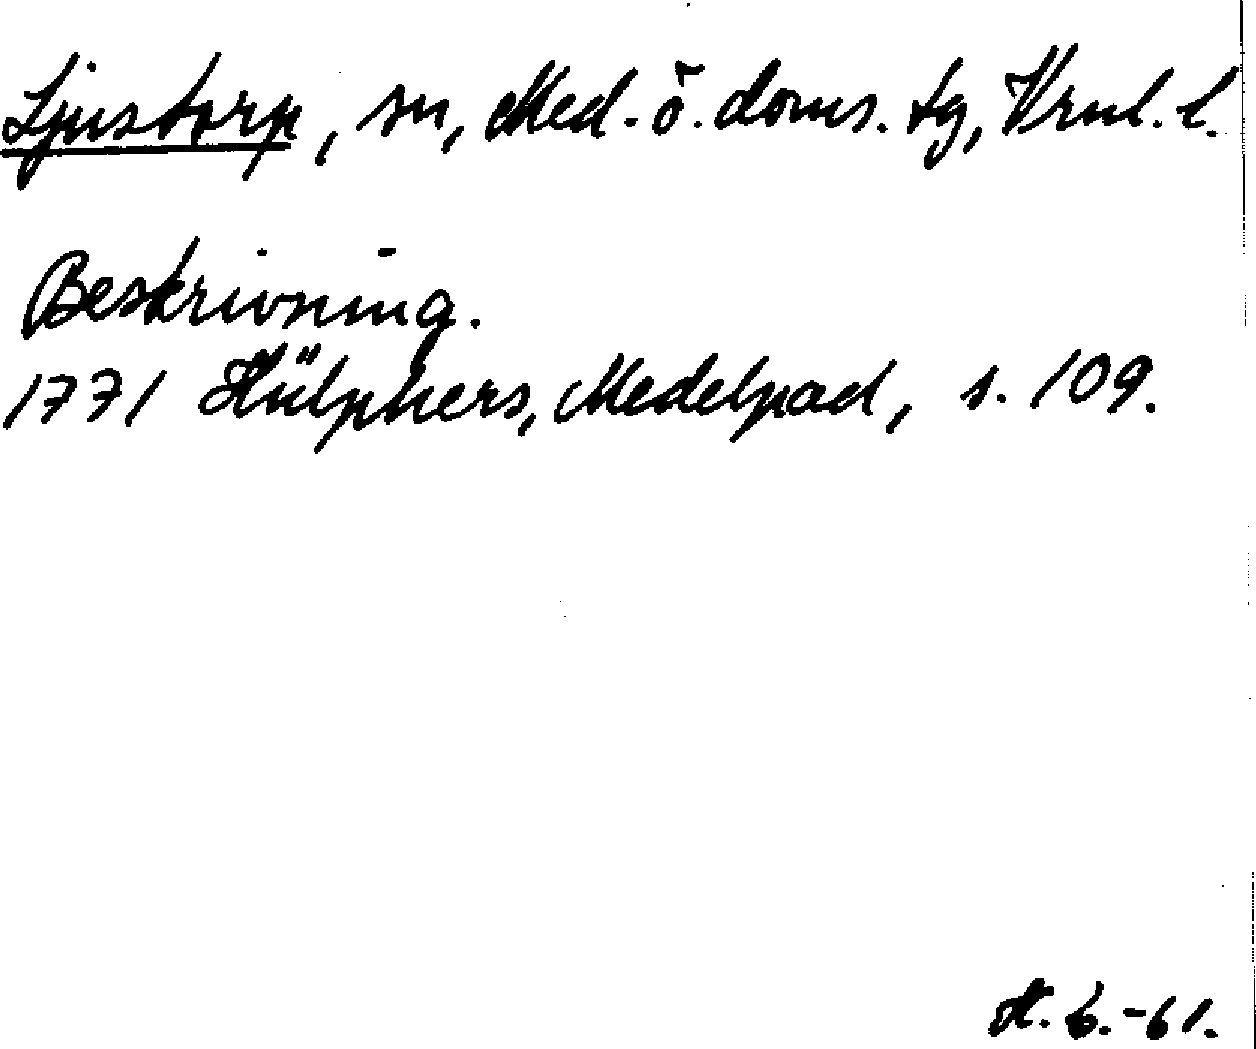 Ljustorp, sn, Med. ö. doms. tg, Vrnl. l.
Beskrivning.
1771 Hülphers, Medelpad, s. 109.
H. G. -61.